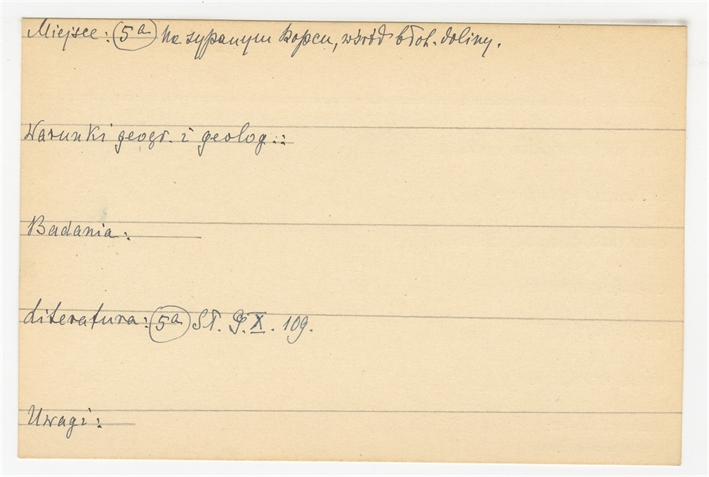 Miejsce: (5a) Na sypanym kopcu, wśród błot. doliny.
Warunki geogr. i geolog.:
Badania:
Literatura: (5a) Sł. G. X. 109.
Uwagi: